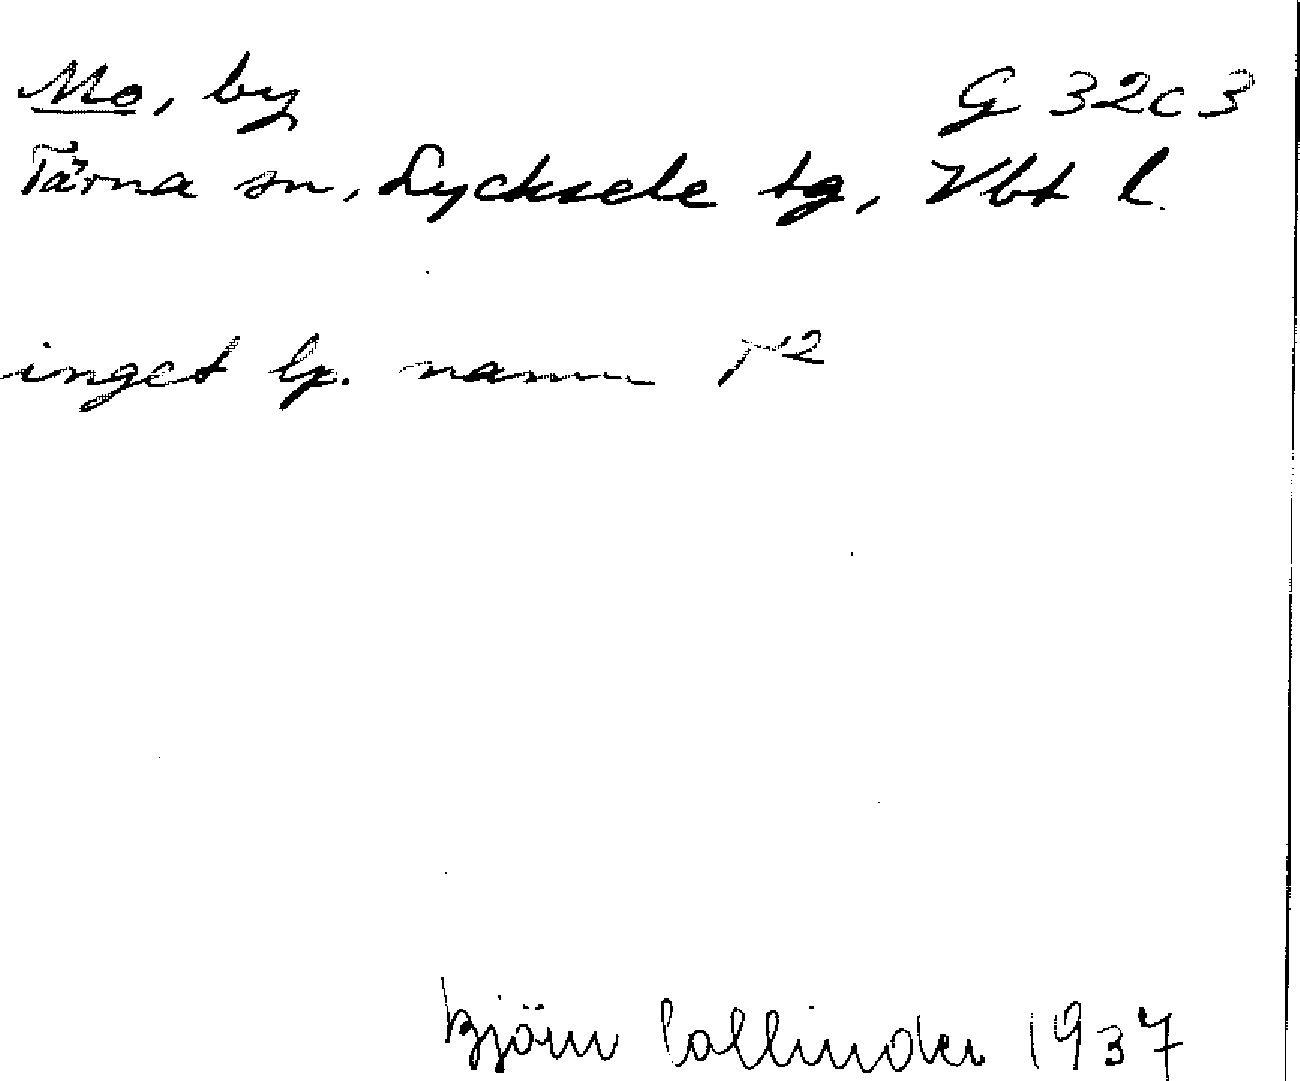 Mo, by G 32c3
Tärna sn, Lycksele tg, Vbt l.
inget lp. namn T2
Björn Collinder 1937